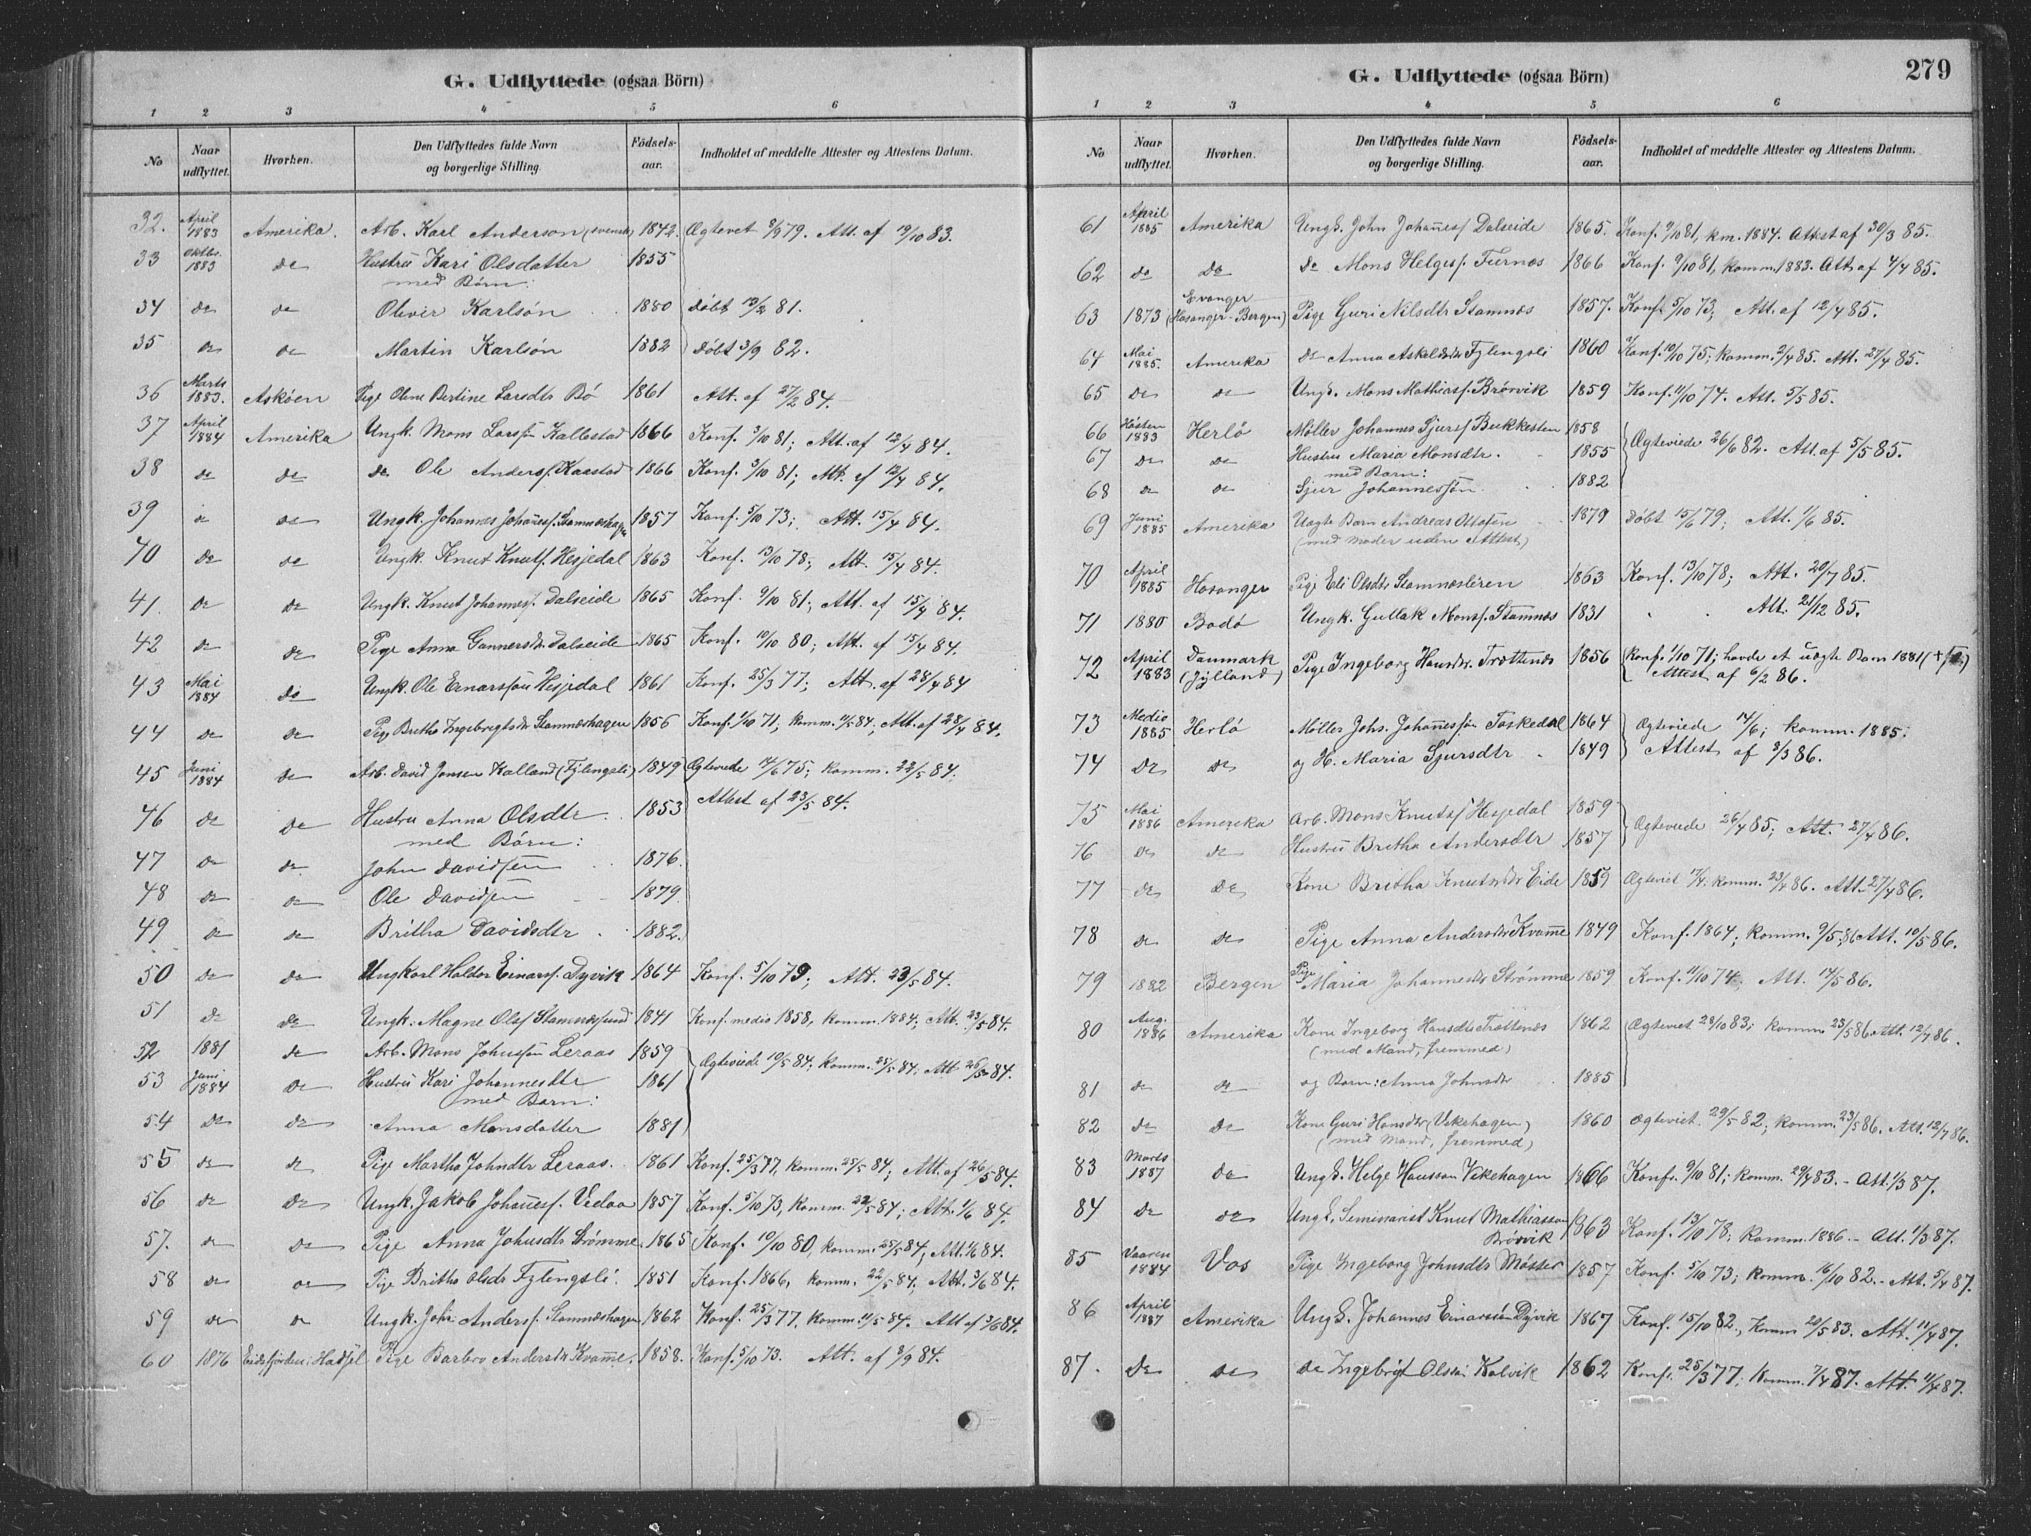 G. Udflyttede (ogsaa Börn)
1 2 3 4 5 6
No Naar udflyttet. Hvorhen. Den Udflyttedes fulde Navn og borgerlige Stilling. Födsels-aar. Indholdet af meddelte Attester og Attestens Datum.
32. April 1883 Amerika. Arb. Karl Anderson (svensk) 1842. Ægtevet 8/9 79. Att. af 19/10 83.
33 Oktbr. 1883 do Hustru Kari Olsdatter 1855
med Børn:
34 do do Oliver Karlsøn 1880 Døbt 13/2 81.
35 do do Martin Karlsøn 1882 Døbt 3/9 82.
36 Marts 1883. Askøen Pige Oline Bertine Larsdtr Bø 1861 Att. af 27/2 84.
37 April 1884 Amerika Ungk. Mons Larssøn Kallestad 1866 Konf. 3/10 81; Att. af 12/4 84.
38 do do do Ole Anderss. Kaarstad 1866 Konf. 3/10 81; Att. af 12/4 84.
39 do do Ungk. Johannes Johaness. Stamneshagen 1857 Konf. 5/10 73; Att. 15/4 84.
40 do do Ungk. Knut Knuts. Hesjedal 1863 Konf. 13/10 78; Att. 15/4 84.
41. do do Ungk. Knut Johannes. Dalseide 1865 Konf. 9/10 81; Att. af 15/4 84.
42 do do Pige Anna Gunnersdr. Dalseide 1865 Konf. 10/10 80; Att. af 15/4 84.
43 Mai 1884 do Ungk. Ole Einarssøn Hesjedal 1861 Konf. 25/3 77; Att. af 28/4 84
44 do do Pige Britha Ingebregtsdr Stamneshagen 1856 Konf. 1/10 71, komm. 9/5 84; Att. af 28/4 84.
45 Juni 1884 do Arb. David Jonsen Kalland (Fylengsli) 1849 Ægteviede 17/6 75; komm. 22/5 84.
46 do do Hustru Anna Olsdtr. 1853 Attest af 23/5 84.
med Børn:
47 do do John Davidsen 1876.
48 do do Ole Davidsen 1879.
49 do do Britha Davidsdtr 1882.
50 do do Ungkarl Haldor Einars. Dyvik 1864 Konf. 5/10 79; Att. 23/5 84.
51 do do Ungk. Magne Ols. Stamnessund 1841 Konf. medio 1858, komm. 1884; Att. 23/5 84.
52 1881 do Arb. Mons Johnssøn Leraas 1859 Ægteviede 10/5 84; komm. 25/5 84. Att 26/5 84.
53 Juni 1884 do Hustru Kari Johannesdtr 1861
med Barn:
54 do do Anna Monsdatter 1881
55 do do Pige Martha Johndtr Leraas. 1861 Konf. 25/3 77, komm. 25/5 84; Att. af 26/5 84.
56 do do Ungk. Jakob Johaness. Vedaa 1857 Konf. 5/10 73, komm. 22/5 84; Att. 1/6 84.
57. do do Pige Anna Johnsdtr Strømme. 1865 Konf. 10/10 80, komm. 25/5 84, Att. 1/6 84.
58 do do Pige Britha Olsdr Fylengsli. 1851 Konf. 1866, komm. 22/5 84; Att. 3/6 84.
59 do do Ungk. John Anders. Stamneshagen 1862 Konf. 25/3 77, komm. 11/5 84. Att af 3/6 84.
60 1876 Eidsfjorden i Hadsel Pige Barbro Andersdr Kvamme. 1858. Konf. 5/10 73. Att. af 8/9 84.
G. Udflyttede (ogsaa Börn) 279
1 2 3 4 5 6
No Naar udflyttet. Hvorhen. Den Udflyttedes fulde Navn og borgerlige Stilling. Födsels-aar. Indholdet af meddelte Attester og Attestens Datum.
61 April 1885 Amerika Ungk. John Johaness. Dalseide 1865. Konf. 9/10 81, km. 1884. Attest af 30/3 85.
62 do do do Mons Helges. Furnes 1866 Konf. 9/10 81, komm. 1883. Att af 4/4 85.
63 1873 Evanger (Hosanger-Bergen) Pige Guri Nilsdtr Stamnes 1857. Konf. 5/10 73; Att. af 12/4 85.
64 Mai 1885. Amerika do Anna Askeldsdr Fylengsli 1860 Konf. 10/10 75; komm. 2/4 85. Att. 27/4 85.
65 do do Ungk. Mons Mathiass. Brørvik 1859 Konf. 11/10 74. Att. 5/5 85.
66 Høsten 1883 Herlø Møller Johannes Sjurs. Bukkesten 1858 Ægteviede 26/6 82. Att. af 5/5 85.
67 do do Hustru Maria Monsdtr. 1855
med Barn:
68 do do Sjur Johannessøn 1882
69 Juni 1885 Amerika Uægte Barn Andreas Ottesen 1879 Døbt 15/6 79; Att. 1/6 85.
(med Moder uden Attest)
70 April 1885 Hosanger Pige Eli Olsdtr Stamnesløren 1863 Konf. 13/10 78; Att. 20/7 85.
71 1880 Bodø Ungk. Gullak Mons. Stamnes 1831 Att. 21/12 85.
72 April 1883 Danmark (Jylland) Pige Ingeborg Hansdr. Trøttenes 1856 Konf. 1/10 71; havde et uægte Barn 1881
Attest af 6/2 86.
73 Medio 1885 Herlø Møller Johs. Johanessøn Toskedal 1864 Ægteviede 14/6; komm. 1885;
74 do do og H. Maria Sjursdtr 1849 Attest af 3/3 86.
75 Mai 1886 Amerika Arb. Mons Knuts. Hesjedal 1859 Ægteviede 26/4 85; Att. 27/4 86.
76 do do Hustru Britha Andersdtr 1857
77 do do Kone Britha Knutsdr Eide 1859 Ægteviet 17/4, komm. 23/4 86. Att. 27/4 86.
78 do do Pige Anna Andersdr Kvamme 1849 Konf. 1864; komm. 9/5 86 Att. 10/5 86.
79 1882 Bergen Pige Maria Johannesdr Strømme 1859 Konf. 11/10 74. Att. 14/5 86.
80 Aug. 1886 Amerika Kone Ingeborg Hansdtr Trøttenes 1862 Ægteviet 28/10 83; komm. 23/5 86. Att. 12/7 86.
(med Mand, fremmed)
81 do do og Barn: Anna Johnsdr 1885
82 do do Kone Guri Hansdtr (Vikehagen) 1860 Ægteviet 29/5 82; komm. 23/5 86. Att. 12/7 86.
(med Mand, fremmed)
83 Marts 1887 do Ungk. Helge Hansson Vikehagen 1866 Konf. 9/10 81; komm. 29/4 83. - Att. 1/3 87.
84 do do Ungk. Seminarist Knut Mathiasson Brørvik 1863 Konf. 13/10 78; Komm. 1886. - Att. 1/3 87.
85 Vaaren 1884 Vos Pige Ingeborg Johnsdtr Møster 1857 Konf. 5/10 73; komm. 16/10 82. - Att. 5/4 87.
86 April 1887 Amerika Ungk. Johannes Einarssøn Dyvik 1867 Konf. 15/10 82, Komm 20/5 83. Att. 11/4 87.
87. do do do Ingebrigt Olssøn Kalvik 1862 Konf. 25/3 77; Komm. 7/4 87. Att. 11/4 87.